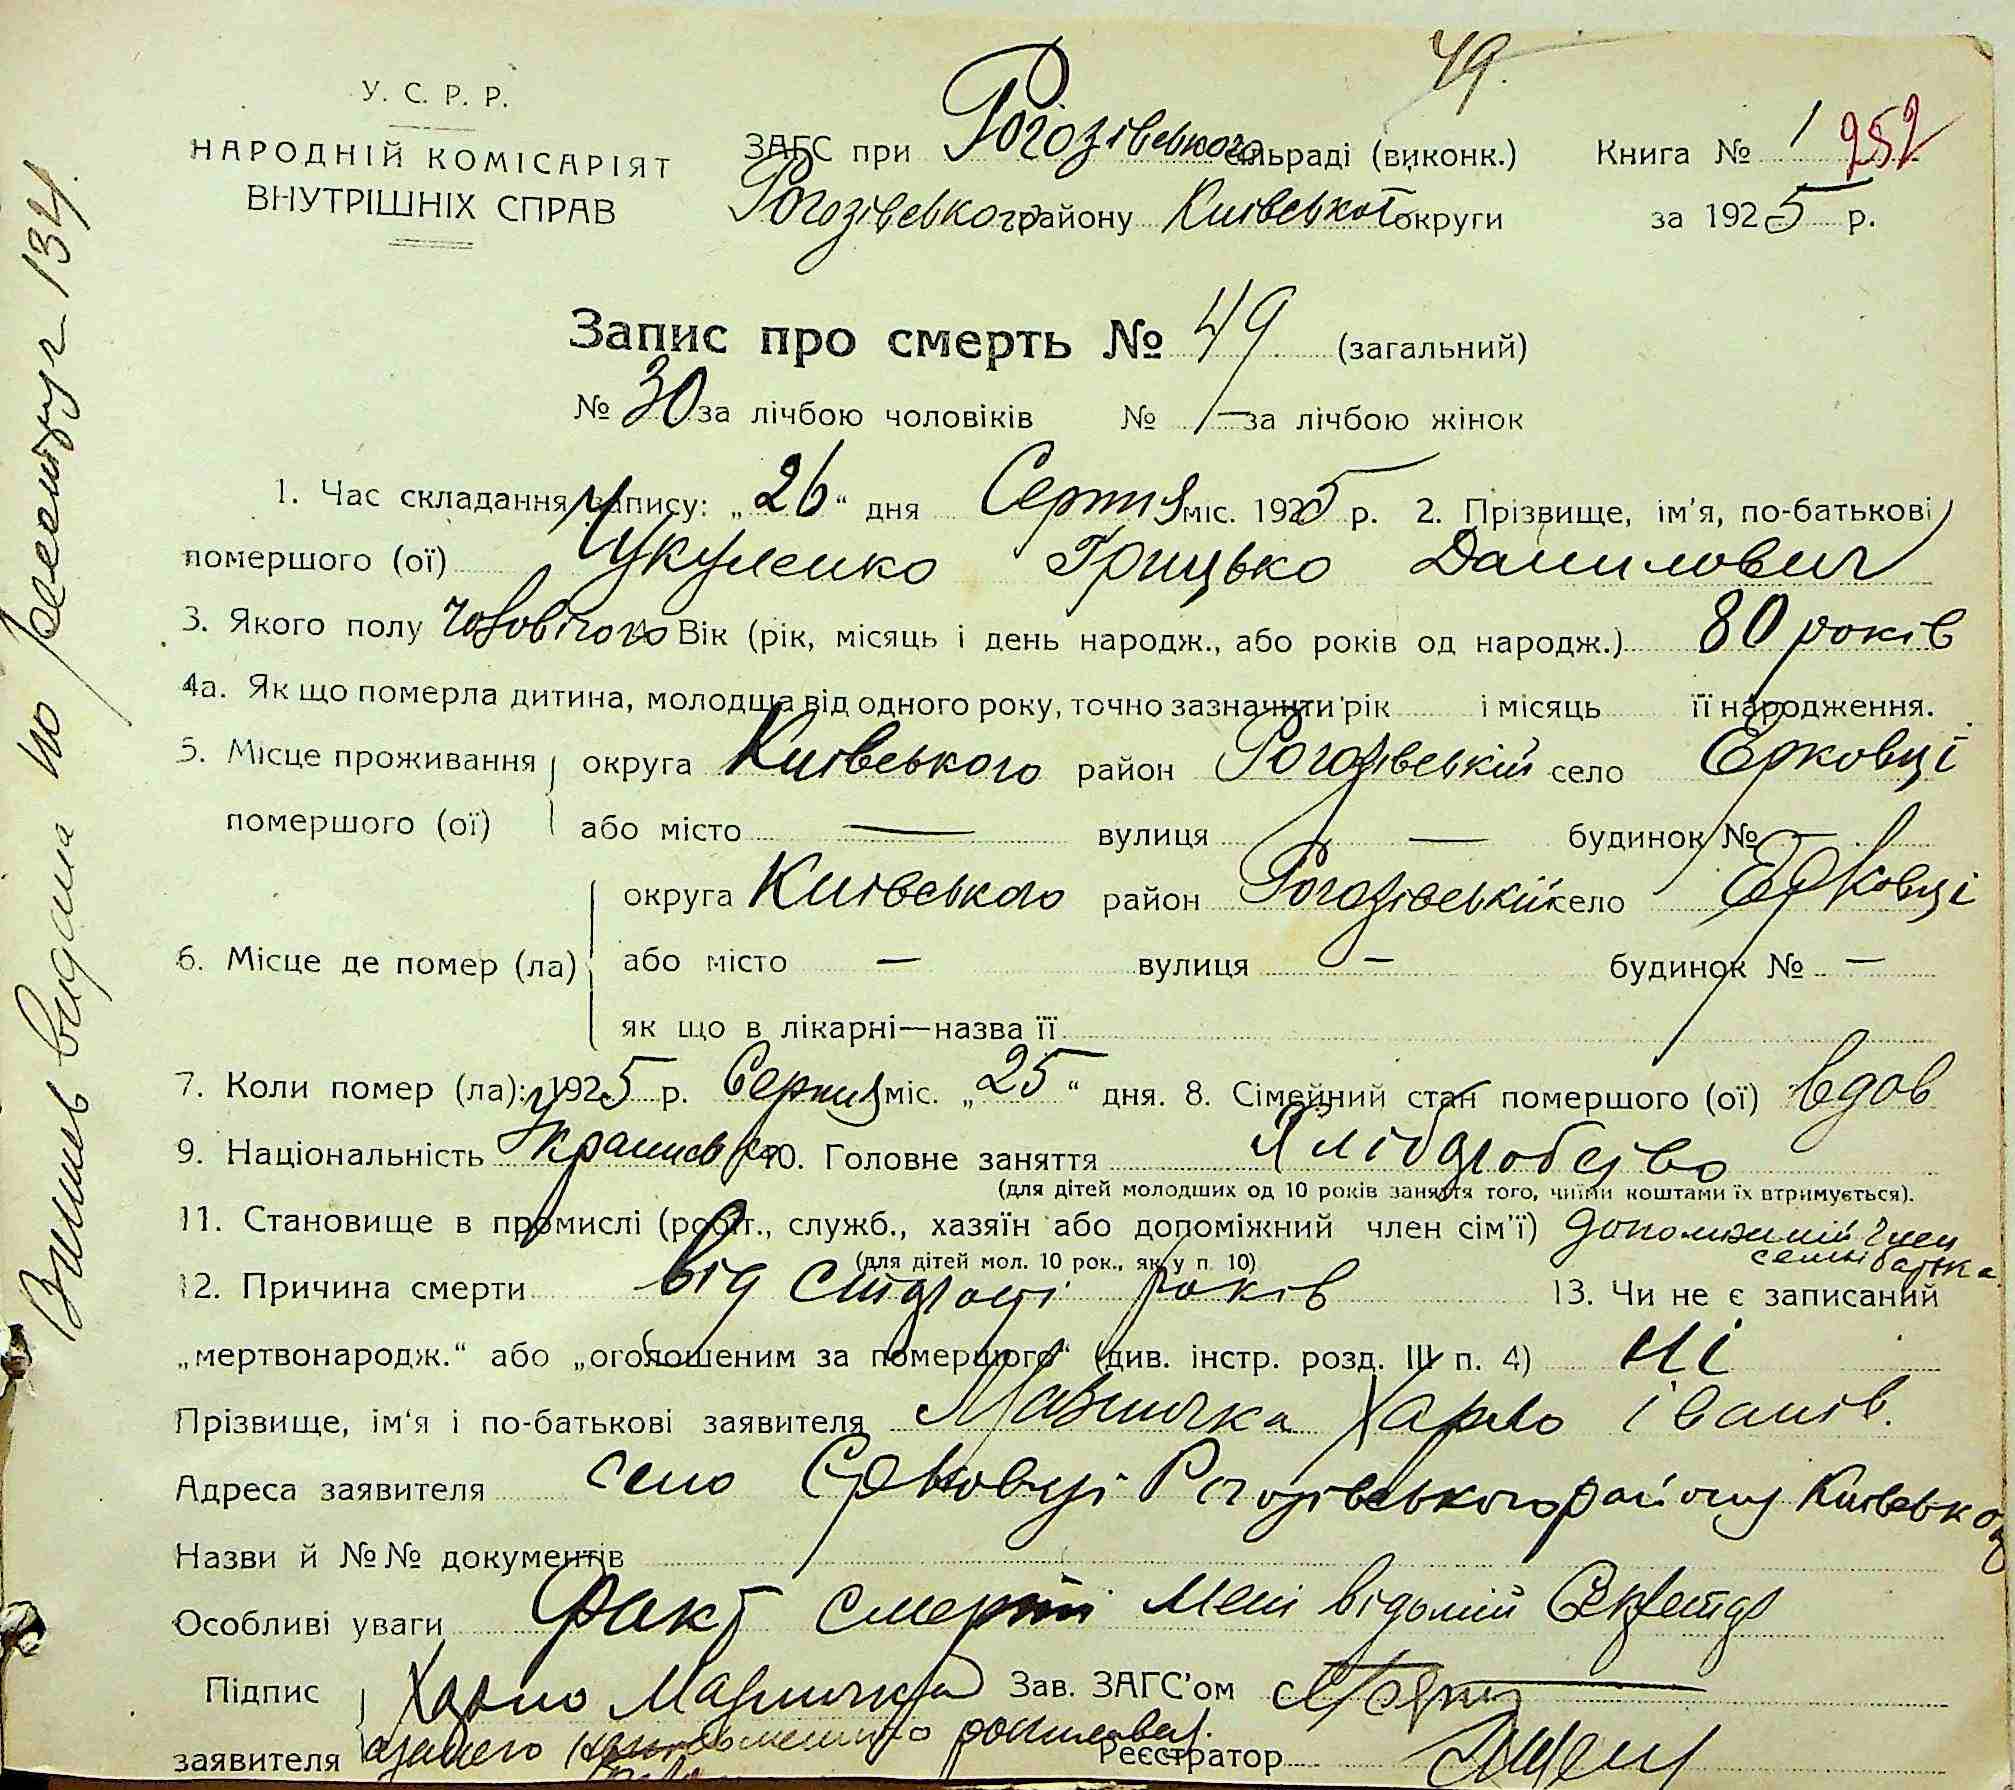 49.
У. С. Р. Р.
НАРОДНІЙ КОМІСАРІЯТ
ВНУТРІШНІХ СПРАВ
ЗАГС при Рогозівського сільраді (виконк.) Книга № 1 252
Рогозівського району Київської округи за 1925 р.
Запис про смерть № 49 (загальний)
№ 30 за лічбою чоловіків № — за лічбою жінок
1. Час складання запису: „26“ дня Серпня міс. 1925 р. 2. Прізвище, ім'я, по-батькові
помершого (ої) Чукуленко Грицько Данилович
3. Якого полу чоловічого Вік (рік, місяць і день народж., або років од народж.) 80 років
4а. Як що померла дитина, молодша від одного року, точно зазначити рік і місяць її народження.
5. Місце проживання округа Київського район Рогозівський село Ерковці
помершого (ої) або місто — вулиця — будинок № —
округа Київського район Рогозівський село Ерковці
6. Місце де помер (ла) або місто — вулиця — будинок № —
як що в лікарні—назва її
7. Коли помер (ла): 1925 р. Серпня міс. „25“ дня. 8. Сімейний стан помершого (ої) вдов
9. Національність 10. Головне заняття Хліборобство
(для дітей молодших од 10 років заняття того, чиїми коштами їх втримується).
11. Становище в промислі (робіт., служб., хазяїн або допоміжний член сім'ї) допоміжний член
семьі батька
(для дітей мол. 10 рок., як у п. 10)
12. Причина смерти від старості років 13. Чи не є записаний
„мертвонародж.“ або „оголошеним за помершого“ (див. інстр. розд. III п. 4) ні
Прізвище, ім'я і по-батькові заявителя Харло Іванів.
Адреса заявителя село Ерковці Рогозівського району Київської
Назви й №№ документів
Особливі уваги Факт смерти мені відомий Секретар
Підпис Харло Зав. ЗАГС'ом
заявителя Реєстратор
Випись видана по реєстру 134.